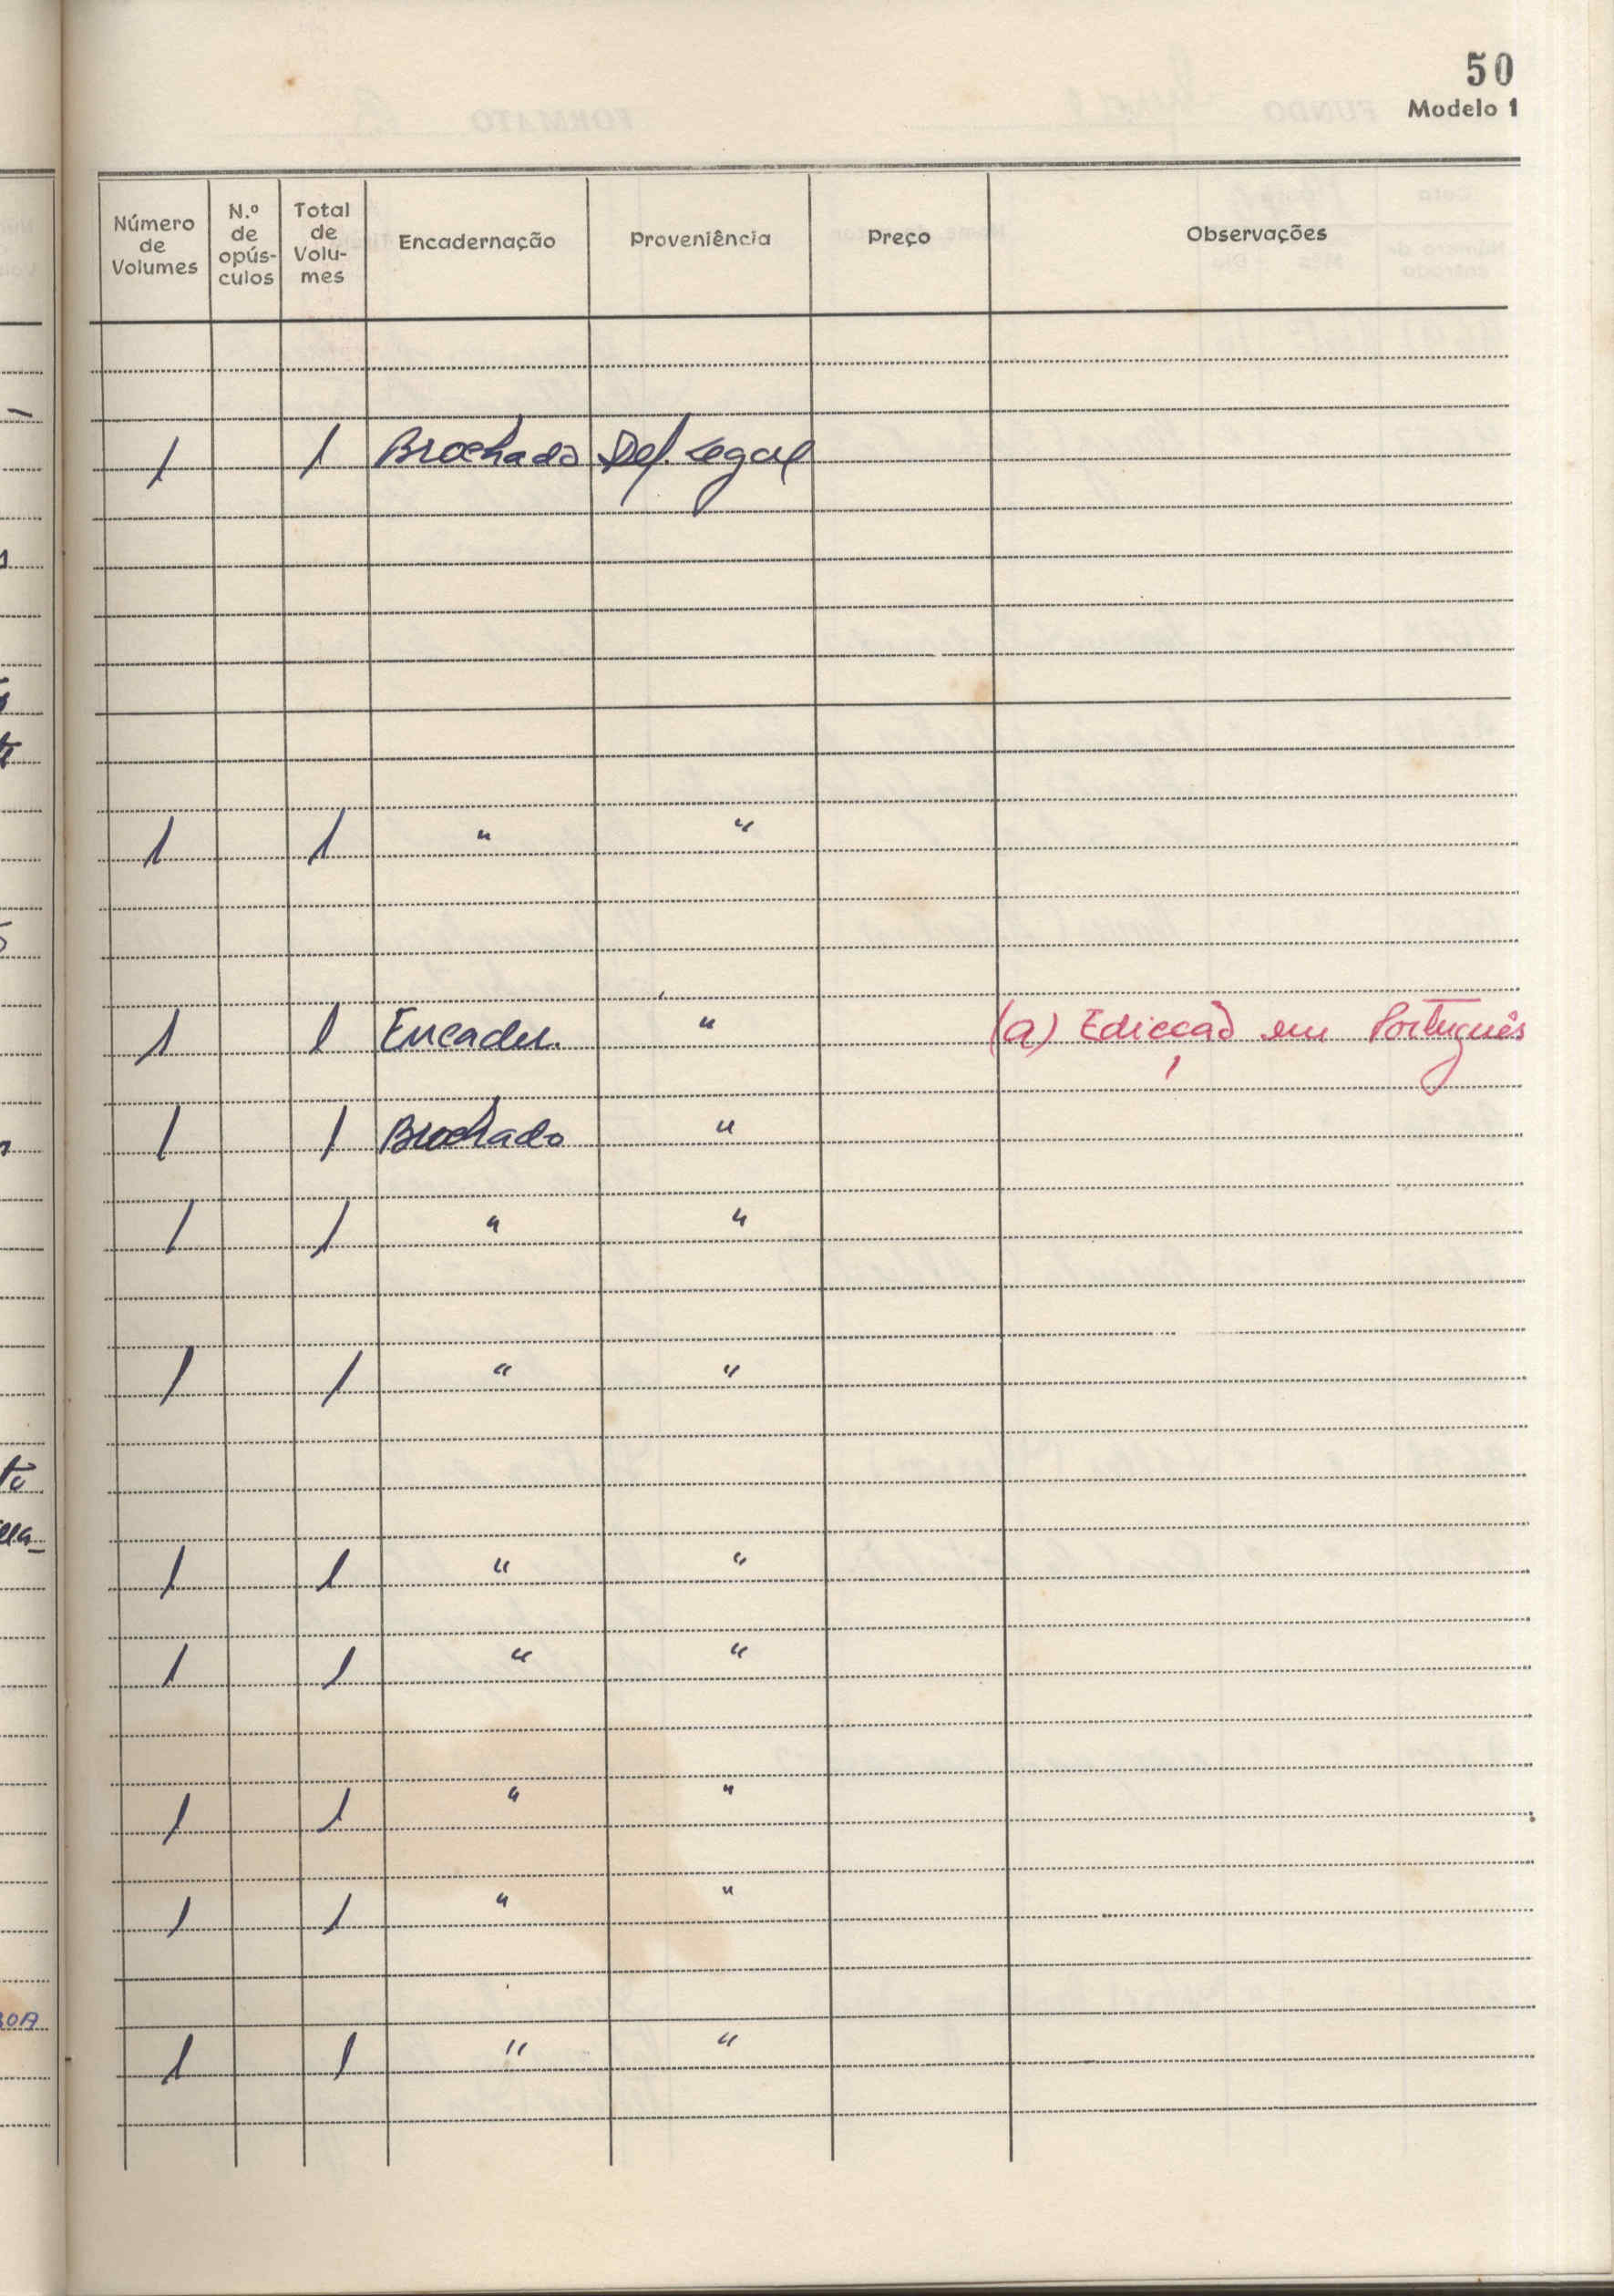 50
Modelo 1
Número de Volumes | N.º de opús-culos | Total de Volu-mes | Encadernação | Proveniência | Preço | Observações
1 | | 1 | Brochado | Def. Legal
1 | | 1 | " | "
1 | | 1 | Encader. | " | | (a) Edicçaõ em Português
1 | | 1 | Brochado | "
1 | | 1 | " | "
1 | | 1 | " | "
1 | | 1 | " | "
1 | | 1 | " | "
1 | | 1 | " | "
1 | | 1 | " | "
1 | | 1 | " | "